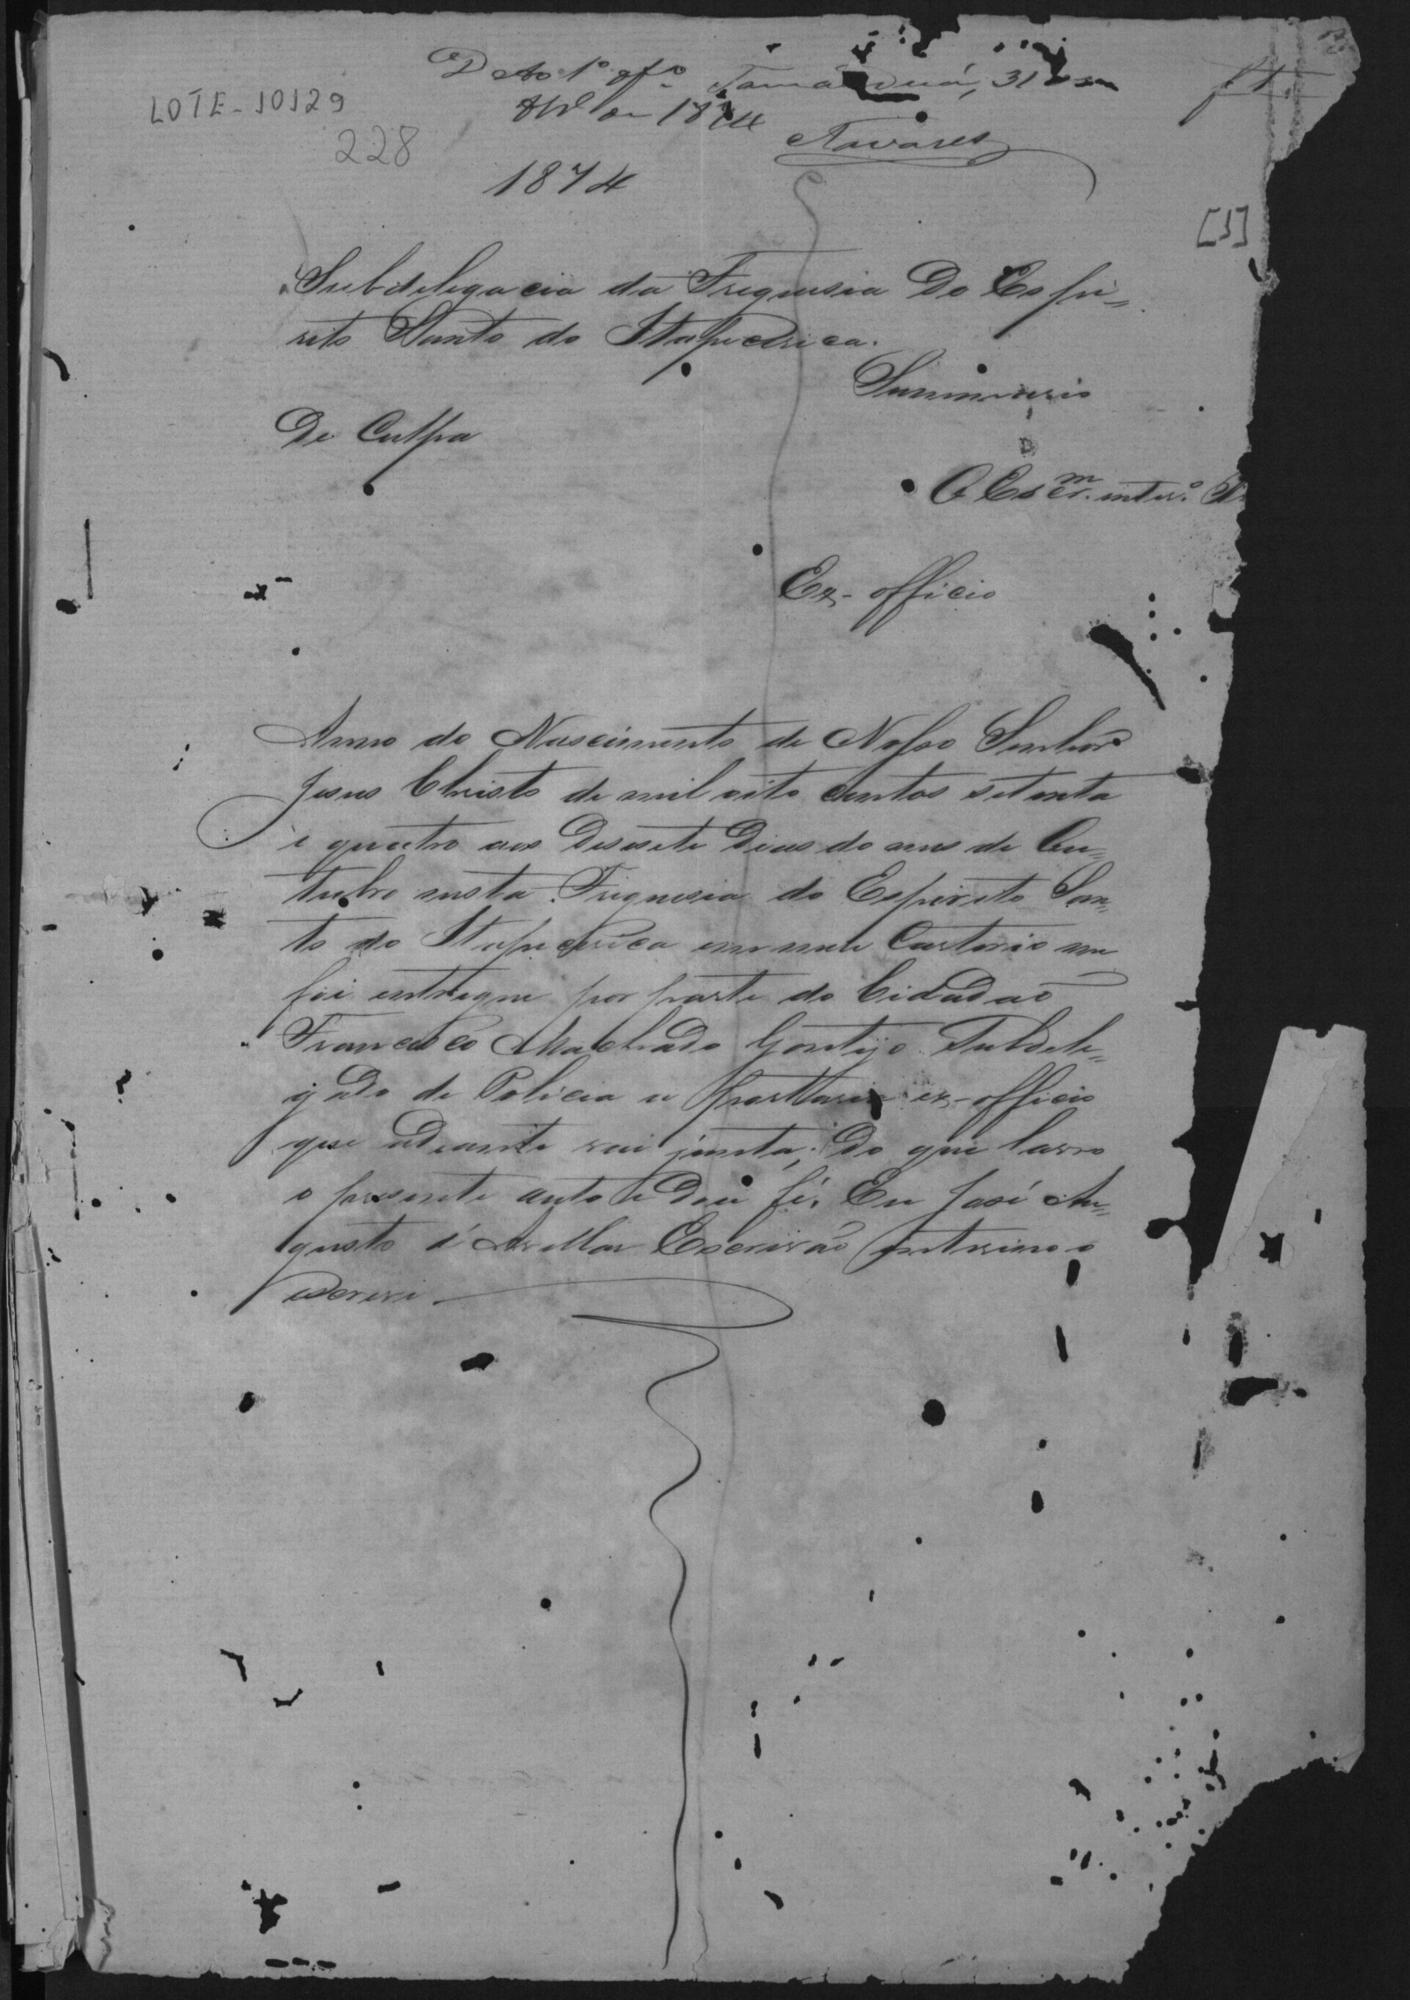 D Ao 1º offº Tamanduá, 31 de
de 1874
LOTE-10129
228
Tavares
f 1
1874
[1]
Subdelegacia da Freguesia Do Espi=
rito Santo do Itapecerica.
Summario
De Culpa
O Escrm. interº.
Ex-officio
Anno do Nascimento de Nosso Senhor
Jesus Christo de mil oito centos setenta
e quatro aos Desesete Dias do mes de Ou=
tubro nesta Freguesia do Espirito San=
to do Itapecerica em meu Cartorio me
foi entregue por parte do Cidadaõ
Francisco Machado Gontijo Subdele=
gado de Policia a portaria ex-officio
que adeante vai junta; Do que lavro
o presente auto e Dou fé. Eu José Au=
gusto d'Avellar Escrivaõ interino o
escrevi